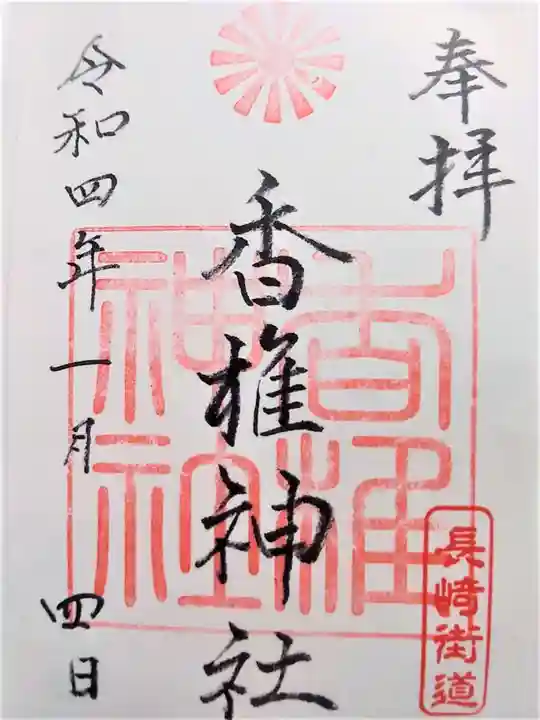 奉拝
香椎神社
令和四年一月四日
香椎神社
長崎街道